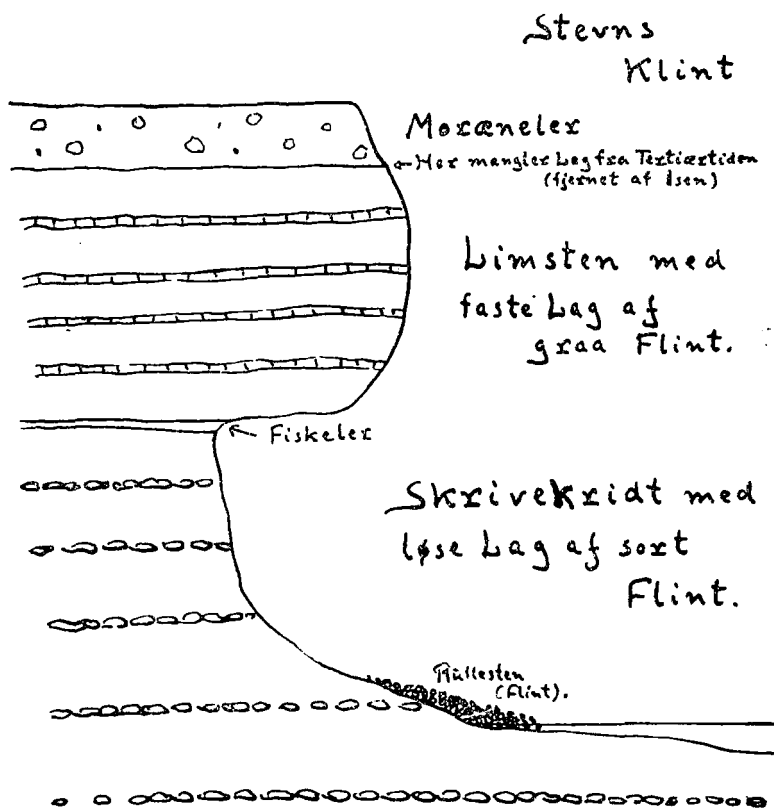 Stevns
Klint
Moræneler
Her mangler Lag fra Tertiærtiden
(fjernet af Isen)
Limsten med
faste Lag af
graa Flint.
Fiskeler
Skrivekridt med
løse Lag af sort
Flint.
Rullesten
(Flint).